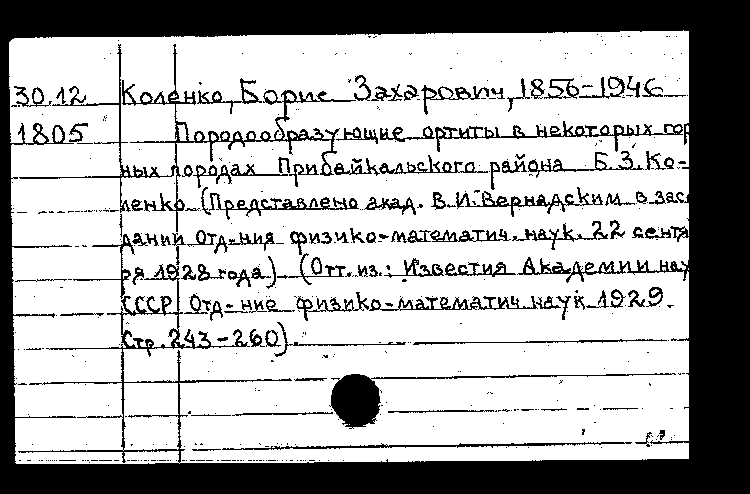 30.12 Коленко, Борис Захарович, 1856-1946
1805 Породообразующие ортиты в некоторых гор
ных породах Прибайкальского района Б.З. Ко-
ленко (Представлено акад. В.И. Вернадским в засе
дании Отд-ния физико-математич. наук. 22 сентя
ря 1928 года). (Отт. из.: Известия Академии нау
СССР Отд-ние физико-математич. наук 1929.
Стр. 243-260).